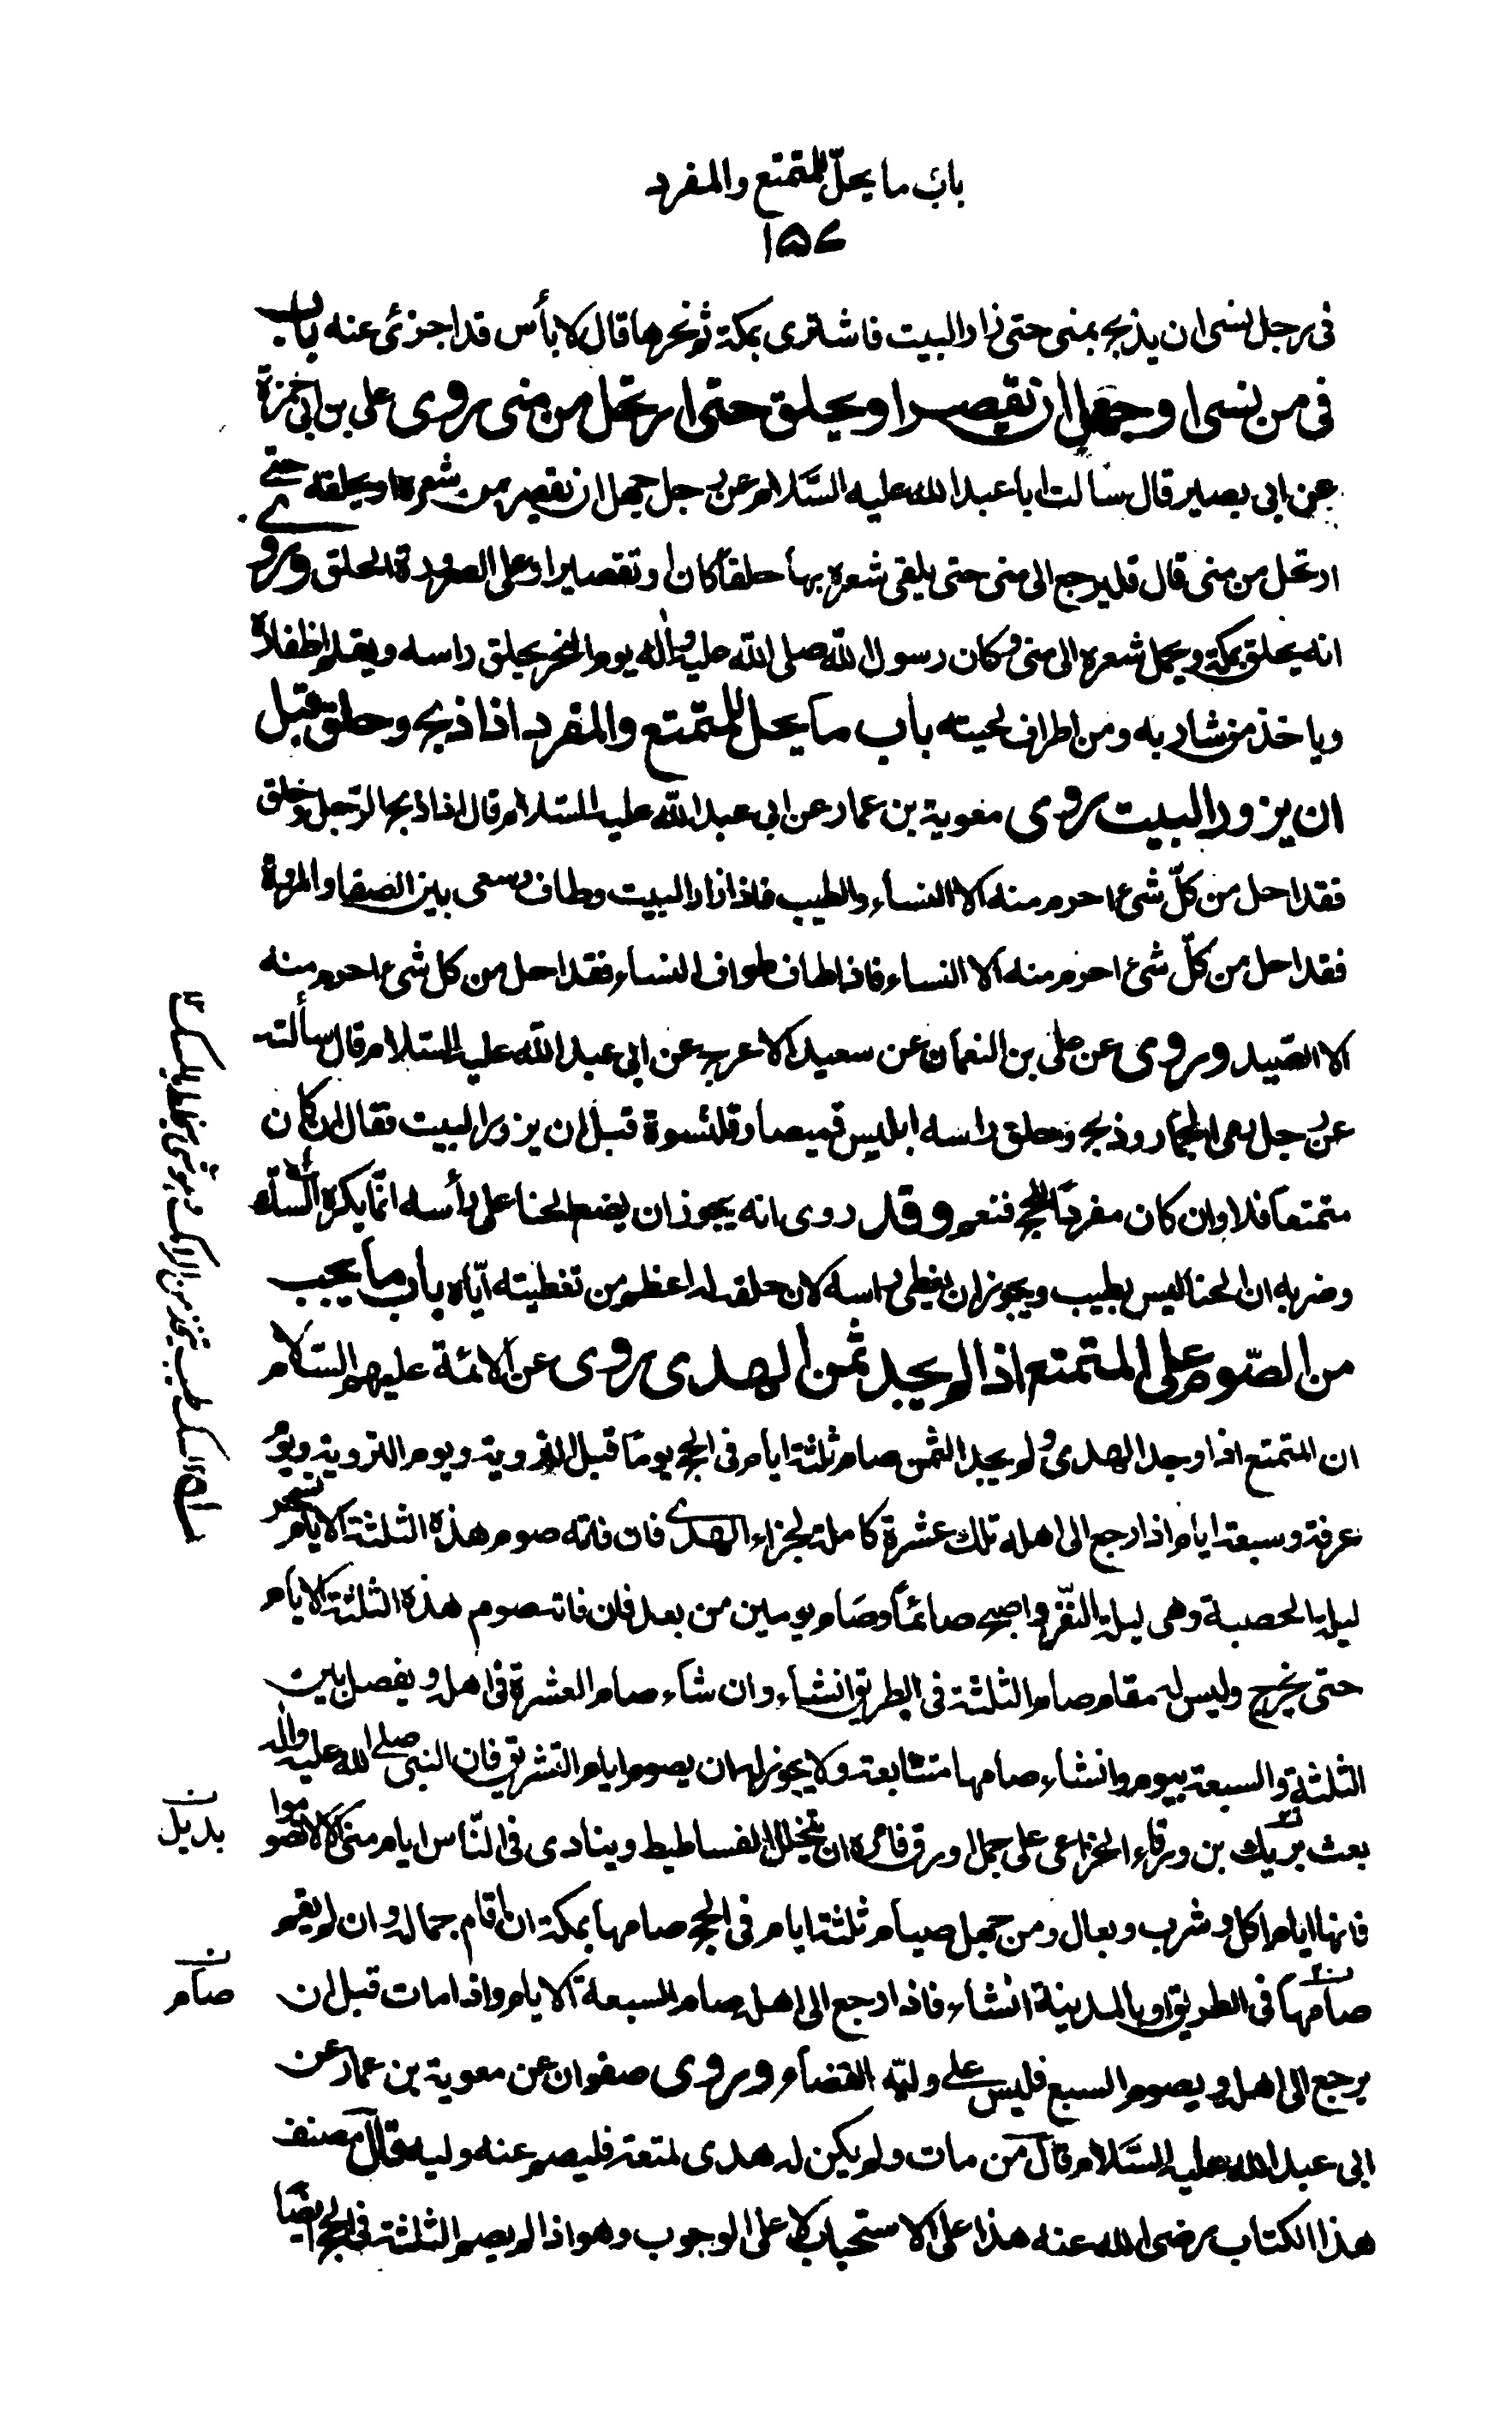 باب ما يحلّ للمتمتع والمفرد
١٥٧
فى رجل نسى ان يذبح بمنى حتى زار البيت فاشترى بمكة ثم نحرها قال لا بأس قد اجزئ عنه باب
فى من نسى او جهل ان يقصر او يحلق حتى ارتحل من منى روى على بن ابى حمزة
عن ابى بصير قال سالت ابا عبد الله عليه السَّلام عن رجل جهل ان يقصر من شعره او يحلقه حتى
ارتحل من منى قال فليرجع الى منى حتى يلقى شعره بها حلقاً كان او تقصيرا وعلى الصرورة الحلق وروى
انه يحلق بمكة ويحمل شعره الى منى وكان رسول الله صلى الله عليه واله يوم النحر يحلق راسه ويقلم اظفاره
وياخذ من شاربه ومن اطراف لحيته باب ما يحل للمتمتع والمفرد اذا ذبح وحلق قبل
ان يزور البيت روى معوية بن عمار عن ابى عبد الله عليه السّلام قال اذا ذبح الرّجل وحلق
فقد احل من كلّ شئ احرم منه الا النساء والطيب فاذا زار البيت وطاف وسعى بين الصفا والمروة
فقد احل من كلّ شئ احرم منه الا النساء فاذا طاف طواف النساء فقد احل من كل شئ احرم منه
الا الصّيد وروى عن على بن النعمان عن سعيد الاعرج عن ابى عبد الله عليه السّلام قال سألته
عن رجل رمى الجمار وذبح وحلق راسه ايلبس قميصا وقلنسوة قبل ان يزور البيت فقال ان كان
متمتعاً فلا وان كان مفرداً للحج فنعم وقد روى انه يجوز ان يضع الحنا على رأسه انّما يكره السك
وضربه ان الحنا ليس بطيب ويجوز ان يغطى راسه لان حلقه له اعظم من تغطيته ايّاه باب ما يجب
من الصّوم على المتمتع اذا لم يجد ثمن الهدى روى عن الائمة عليهم السّلام
ان المتمتع اذا وجد الهدى ولم يجد الثمن صام ثلثة ايام فى الحج يوماً قبل التروية ويوم التروية ويوم
عرفة وسبعة ايام اذا رجع الى اهله تلك عشرة كاملة لجزاء الهدى فان فاته صوم هذه الثلثة الايام تسحر
ليلة الحصبة وهى ليلة النّفر واصبح صائماً وصَام يومين من بعد فان فاته صوم هذه الثلثة الايام
حتى يخرج وليس له مقام صام الثلثة فى الطريق انشاء وان شاء صام العشرة فى اهله ويفصل بين
الثلثة والسبعة بيوم وانشاء صامها متتابعة ولا يجوز له ان يصوم ايام التشريق فان النبى صلى الله عليه واله
بعث بريك بن ورقاء الخزاعى على جمل اورق فامره ان يتخلل الفساطيط وينادى فى النّاس ايام منى الا لا تصوموا
بديل
فانها ايام اكل وشرب وبعال ومن جهل صيام ثلثة ايام فى الحج صامها بمكة ان اقام جماله وان لم يقم
صامها فى الطريق او بالمدينة انشاء فاذا رجع الى اهله صام السبعة الايام واذا مات قبل ان
صام
يرجع الى اهله ويصوم السبع فليس على وليّه القضاء وروى صفوان عن معوية بن عمار عن
ابى عبد الله عليه السَّلام قال من مات ولم يكن له هدى لمتعته فليصم عنه وليه قال مصنف
هذا الكتاب رضى الله عنه هذا على الاستحباب لا على الوجوب وهو اذا لم يصم الثلثة فى الحج ايضاً